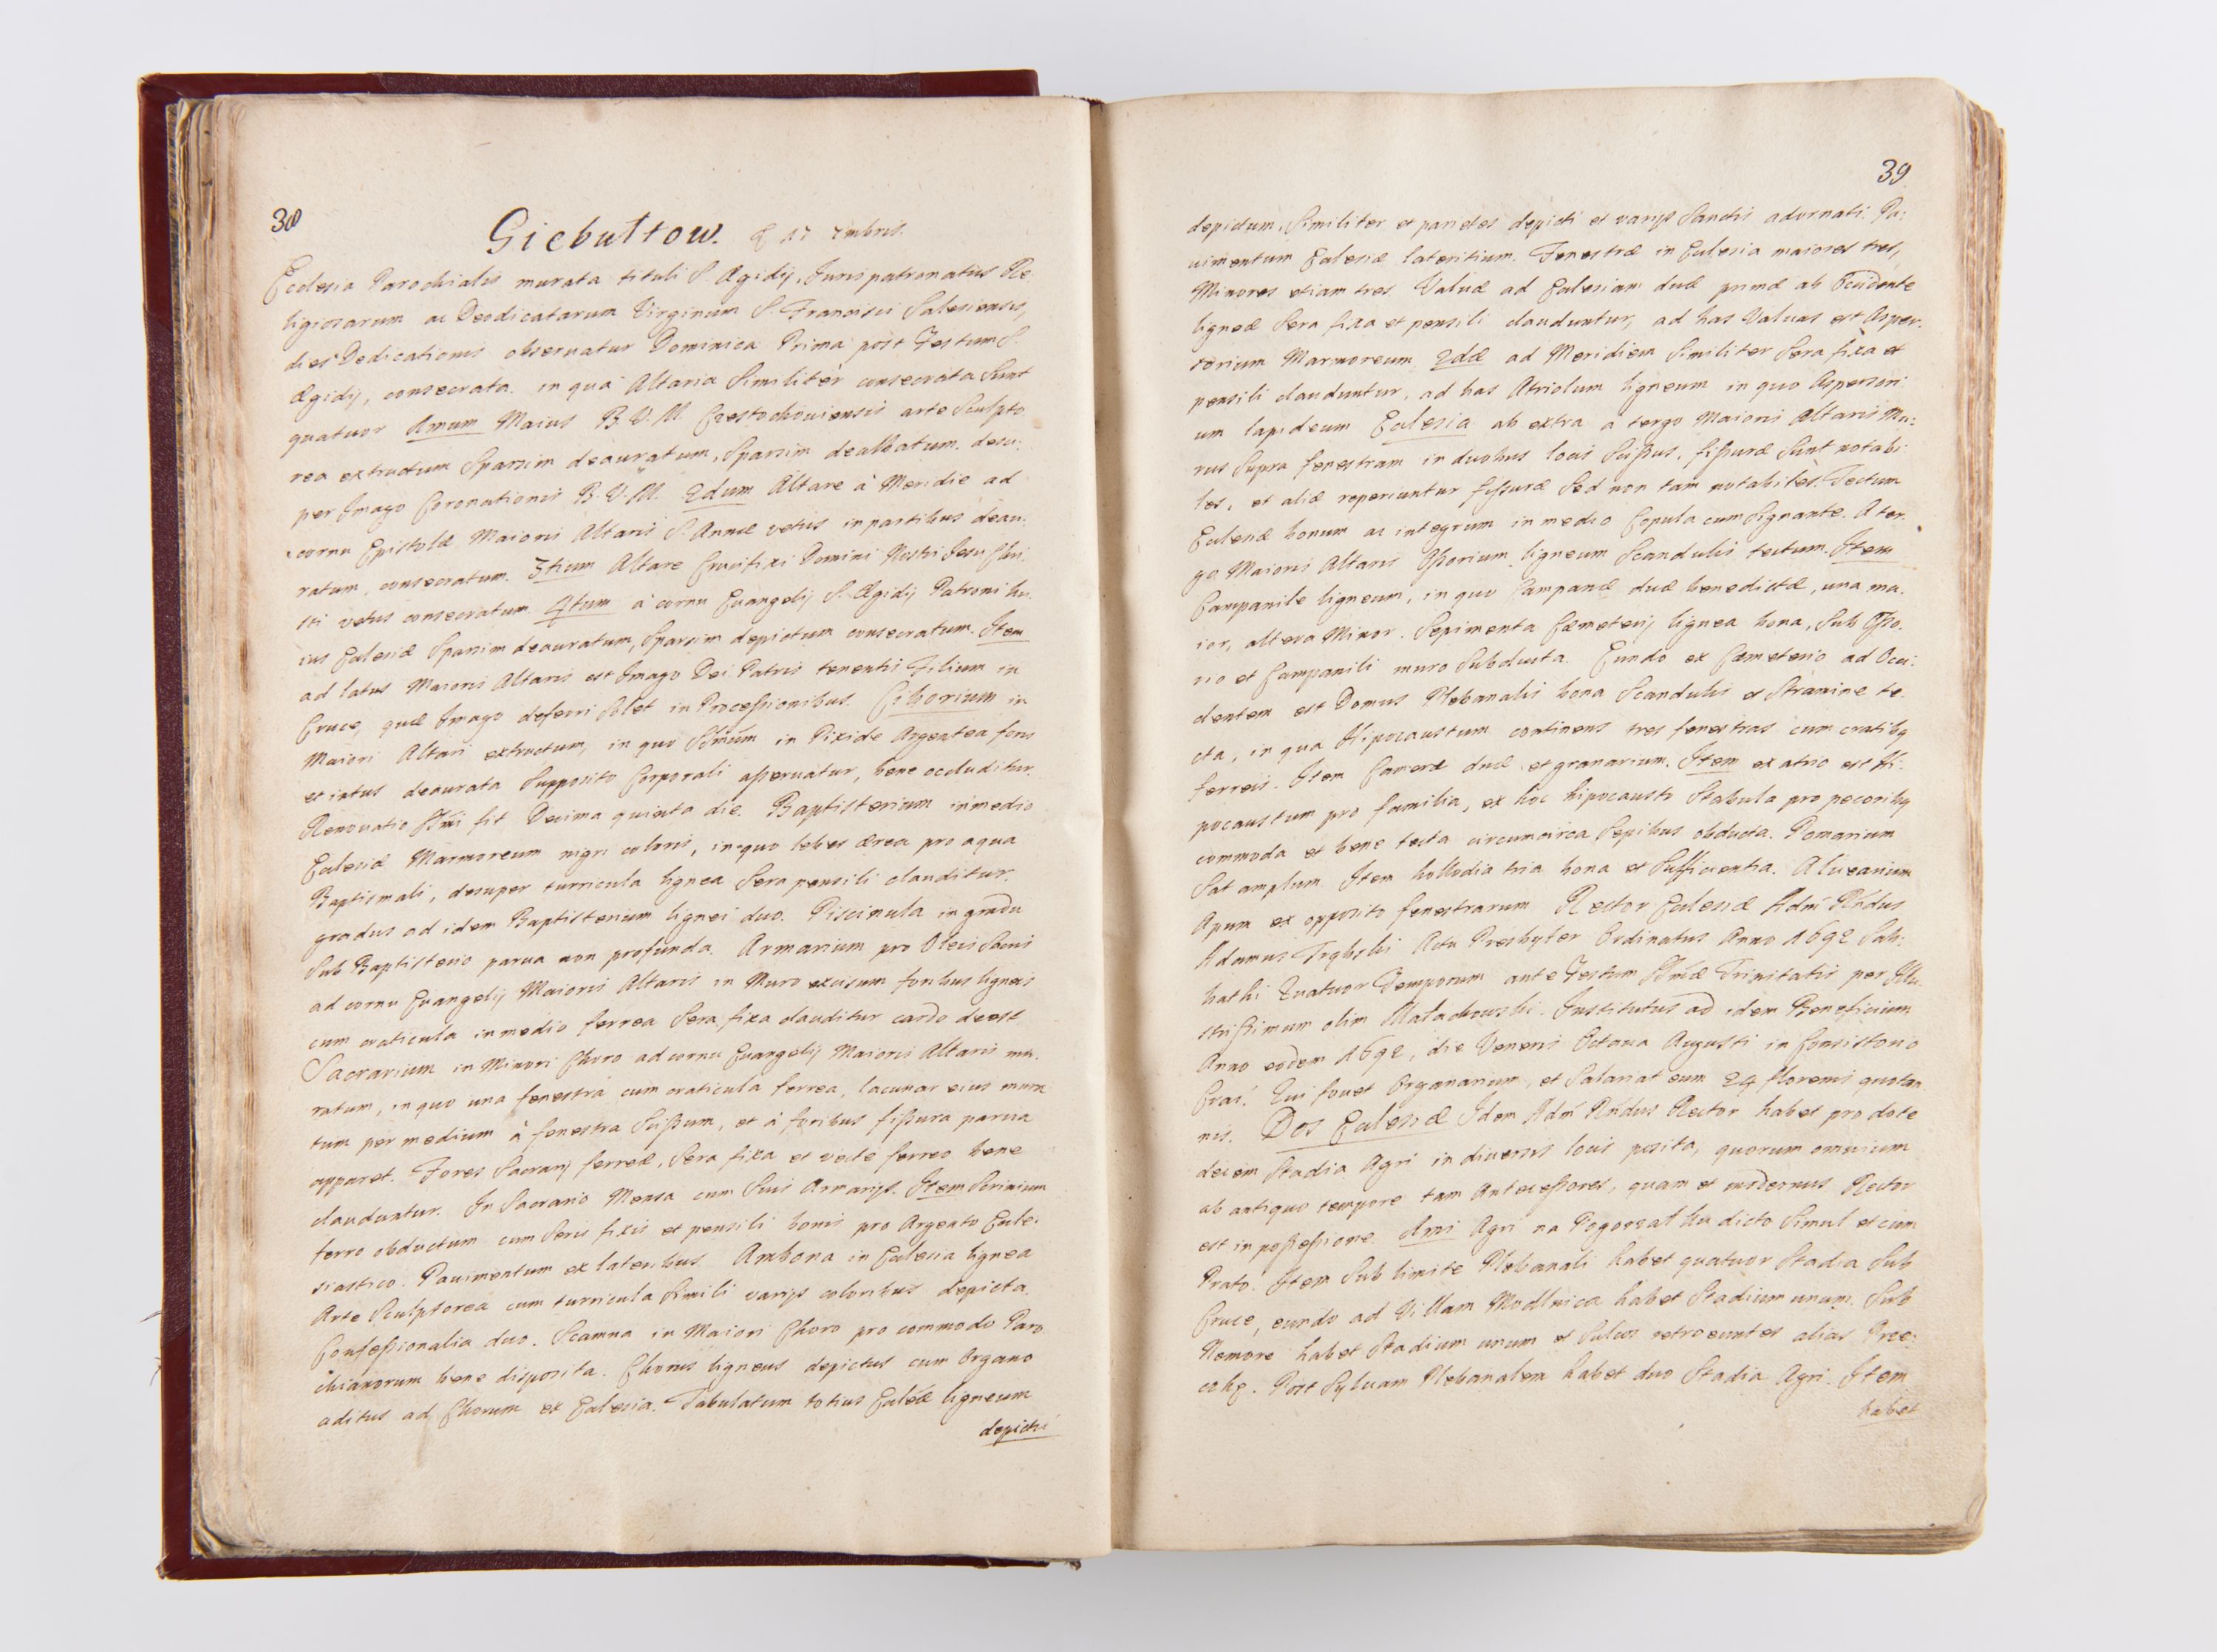 38
Giebułtow. d 17 7mbris.
Ecclesia Parochialis murata tituli S. Ægidij, Juris patronatûs Re
ligiosarum ac Deodicatarum Virginum S. Francisci Salesiensis,
dies Dedicationis observatur Dominica Prima post Festum S.
Ægidij, consecrata. in quâ Altaria Similiter consecrata Sunt
quatuor 1mum Maius B. V. M. Częstochoviensis arte Sculpto
rea extructum Sparsim deauratum, Sparsim dealbatum. desu:
per Imago Coronationis B. V. M. 2dum Altare à Meridie ad
cornu Epistolæ Maioris Altaris S. Annæ vetus in partibus deau:
ratum, consecratum. 3tium Altare Crucifixi Domini Nostri Jesu Chri
sti vetus consecratum 4tum à cornu Euangelij S. Ægidij Patroni hu
ius Ecclesiæ Sparsim deauratum, Sparsim depictum consecratum. Item
ad latus Maioris Altaris est Imago Dei Patris tenentis Filium in
Cruce, quæ Imago deferri Solet in Processionibus. Ciborium in
Maiori Altari extructum, in quo SSmum in Pixide Argentea foris
et intus deaurata Supposito Corporali asservatur, bene occluditur.
Renovatio SSmi fit Decima quinta die. Baptisterium in medio
Ecclesiæ Marmoreum nigri coloris, in quo lebes ærea pro aqua
Baptismali, desuper turricula lignea Sera pensili clauditur.
gradus ad idem Baptisterium lignei duo. Piscinula in gradu
Sub Baptisterio parva non profunda. Armarium pro Oleis Sacris
ad cornu Euangelij Maioris Altaris in Muro excisum foribus ligneis
cum craticula in medio ferrea Sera fixa clauditur cardo deest
Sacrarium in Minori Choro ad cornu Euangelij Maioris Altaris mu.
ratum, in quo una fenestra cum craticula ferrea, lacunar eius mura
tum per medium à fenestra Scissum, et à foribus fissura parua
apparet. Fores Sacrarij ferreæ, Sera fixa et vecte ferreo bene
clauduntur. In Sacrario Mensa cum Suis Armarijs. Item Scrinium
ferro obductum cum Seris fixis et pensili bonis pro Argento Eccle:
siastico. Pauimentum ex lateribus. Ambona in Ecclesia lignea
Arte Sculptorea cum turricula Simili varijs coloribus depicta.
Confessionalia duo. Scamna in Maiori Choro pro commodo Paro
chianorum bene disposita. Chorus ligneus depictus cum Organo
aditus ad Chorum ex Ecclesia. Tabulatum totius Eccłæ ligneum
depictū
39
depictum, Similiter et parietes depicti et varijs Sanctis adornati. Pa:
uimentum Ecclesiæ lateritium. Fenestræ in Ecclesia maiores tres,
Minores etiam tres. Valuæ ad Ecclesiam duæ primæ ab Occidente
ligneæ Sera fixa et pensili clauduntur, ad has Valuas est Asper:
sorium Marmoreum 2dæ ad Meridiem Similiter Sera fixa et
pensili clauduntur, ad has Atriolum ligneum in quo Aspersori
um lapideum Ecclesia ab extra à tergo Maioris Altaris Mu:
rus Supra fenestram in duobus locis Scissus, fissuræ Sunt notabi
les, et aliæ reperiuntur fissuræ Sed non tam notabiles. Tectum
Ecclesiæ bonum ac integrum in medio Copula cum Signante. A ter:
go Maioris Altaris Ossorium ligneum Scandulis tectum. Item
Campanile ligneum, in quo Campanæ duæ benedictæ, una ma.
ior, altera Minor. Sepimenta Cæmeterij lignea bona, Sub Osso.
rio et Campanili muro Subducta. Eundo ex Cæmeterio ad Occi.
dentem est Domus Plebanalis bona Scandulis et Stramine te
cta, in qua Hipocaustum continens tres fenestras cum cratibq
ferreis. Item Cameræ duæ, et granarium. Item ex atrio est hi:
pocaustum pro familia, ex hoc hipocausto Stabula pro pecoribq
commoda et bene tecta circumcirca Sepibus obducta. Pomarium
Sat amplum Item hollodia tria bona et Sufficientia. Aluearium
Apum ex opposito fenestrarum Rector Ecclesiæ Adm Rndus
Adamus Trębski Actu Presbyter Ordinatus Anno 1692 Sab:
bathi Quatuor Temporum ante Festum SSmæ Trinitatis per Illu
strissimum olim Małachowski. Institutus ad idem Beneficium
Anno eodem 1692, die Veneris Octaua Augusti in Consistorio
Crac. Qui fouet Organarium, et Salariat eum 24 florenis quotan
nis. Dos Ecclesiæ Idem Adm Rndus Rector habet pro dote
decem Stadia Agri in diuersis locis posita, quorum omnium
ab antiquo tempore tam Antecessores, quam et modernus Rector
est in possessione. 1mi Agri na Pogorzałku dicto Simul et cum
Prato. Item Sub limite Plebanali habet quatuor Stadia Sub
Cruce, eundo ad Villam Modlnica habet Stadium unum. Sub
Nemore habet Stadium unum et Sulcos retroeuntes alias Prze:
Post Syluam Plebanalem habet duo Stadia Agri. Item
habet